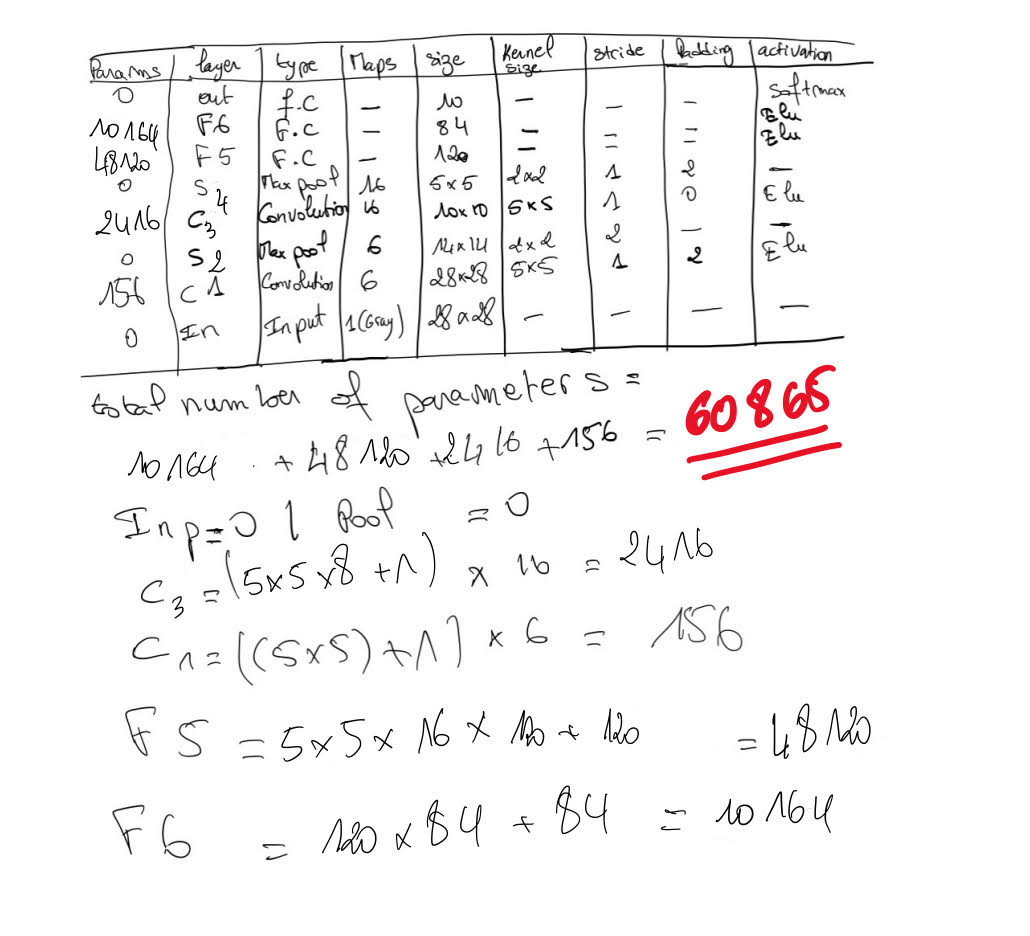 Params layer type Maps size Kernel size stride Padding activation
0 out f.C — 10 — — — Softmax
10164 F6 F.C — 84 — — — Elu
48120 F5 F.C — 120 — — — Elu
0 S4 Max pool 16 5x5 2x2 1 2 —
2416 C3 Convolution 16 10x10 5x5 1 0 Elu
0 S2 Max pool 6 14x14 2x2 2 — —
156 C1 Convolution 6 28x28 5x5 1 2 Elu
0 In Input 1(Gray) 28x28 — — — —
total number of parameters =
10164 + 48120 + 2416 + 156 = 60865
Inp=0 | Pool = 0
C3 = (5x5x8+1) x 16 = 2416
C1 = ((5x5)+1) x 6 = 156
F5 = 5x5x16x120+120 = 48120
F6 = 120x84+84 = 10164